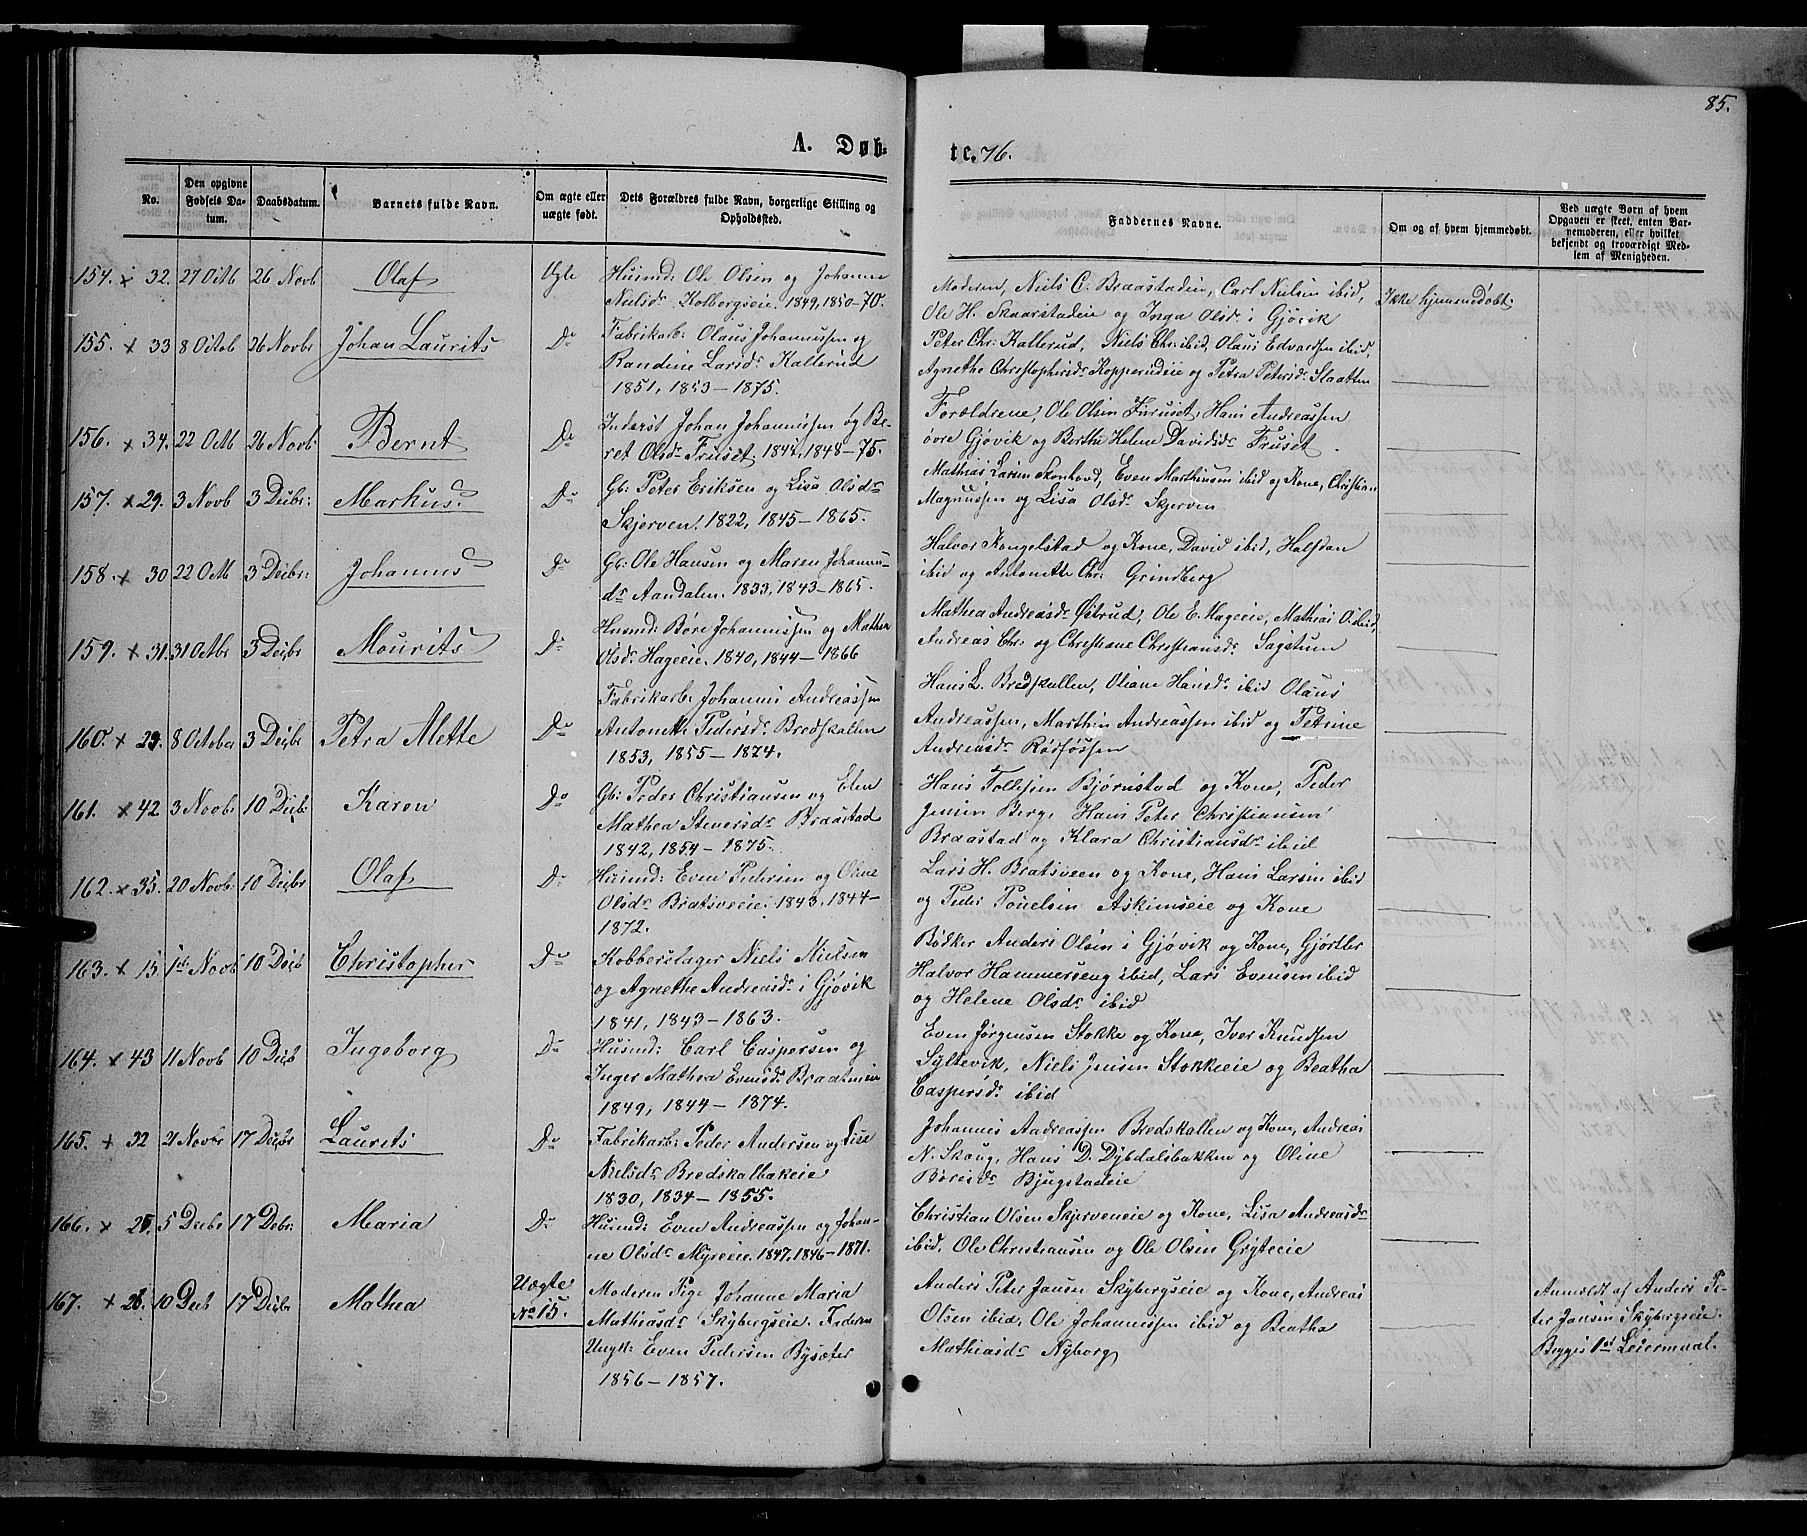 85.
A. Døb-
te. 76.
No.
Den opgivne Fødsels Datum.
Daabsdatum.
Barnets fulde Navn.
Om ægte eller uægte født.
Dets Forældres fulde Navn, borgerlige Stilling og Opholdssted.
Faddernes Navne.
Om og af hvem hjemmedøbt.
Ved uægte Børn af hvem Opgaven er skeet, enten Barnemoderen, eller hvilket bekjendt og troværdigt Medlem af Menigheden.
154. x 32. 27 Octb 26 Novb Olaf Ægte
Husmd: Ole Olsen og Johanne
Nielsdr Kolbergseie. 1849, 1850-70.
Moderen, Niels C. Braastadeie, Carl Nielsen ibid,
Ole H. Skaarstadeie og Inga Olsdr i Gjøvik
Ikke hjemmedøbt
155. x 33 8 Octob 26 Novbr Johan Laurits Do
Fabrikarb: Olaus Johannessen og
Randine Larsdr Kallerud
1851, 1853-1875.
Peter Chr. Kallerud, Niels Chr. ibid, Olaus Edvardsen ibid,
Agnethe Christophersdr Kopperudeie og Petra Petersdr Slaatten
156. x 34. 22 Octb 26 Novb: Bernt Do
Inderst Johan Johannessen og Be-
ret Olsdr Fruset. 1844, 1848-75.
Forældrene, Ole Olsen Furuset, Hans Andreassen
øvre Gjøvik og Berthe Helene Davidsdr Fruset.
157. x 29. 3 Novb 3 Decbr: Markus. Do
Gb: Peter Eriksen og Lisa Olsdr
Skjerven. 1822, 1845-1865.
Mathias Larsen Skonhovd, Even Marthinsen ibid og Kone, Christian
Magnussen og Lisa Olsdr Skjerven
158. x 30 22 Octb 3 Decbr: Johannes Do
Gb: Ole Hansen og Maren Johannes-
dr Aandalen. 1833, 1843-1865.
Halvor Kongelstad og Kone, David ibid, Halfdan
ibid og Antonette Chr: Grindberg
159. x 31. 31 Octbr 3 Decbr Mourits Do
Husmd: Børe Johannessen og Mathea
Olsdr Hageeie. 1840, 1844-1866
Mathea Andreasdr Østrud, Ole E. Hageeie, Mathias O. ibid,
Andreas Chr. og Christiane Christiansdr Sagstuen
160. x 23. 8 October 3 Decbr Petra Alette Do
Fabrikarb: Johannes Andreassen
Antonette Pedersdr Bredskallen
1853, 1855-1874.
Hans L. Bredskallen, Oliane Hansdr ibid Olaus
Andreassen, Marthin Andreassen ibid og Petrine
Andreasdr Rødfossen
161. x 42 3 Novb: 10 Decb Karen Do
Gb: Peder Christiansen og Elen
Mathea Siversdr Braastad
1842, 1854-1875.
Hans Tollefsen Bjørnstad og Kone, Peder
Jensen Berg, Hans Peter Christiansen
Braastad og Klara Christiansdr ibid
162. x 35. 20 Novb. 10 Decbr Olaf Do
Husmd: Even Pedersen og Oline
Olsdr Bratsveeie. 1843, 1844-
1872.
Lars H. Bratsveen og Kone, Hans Larsen ibid
og Peder Poulsen Askimseie og Kone
163. x 15 1st Novb 10 Decb Christopher Do
Kobberslager Niels Nielsen
og Agnethe Andreasdr i Gjøvik
1841, 1843-1863.
Bødker Anders Olsen i Gjøvik og Kone, Gjørtler
Halvor Hammerseng ibid, Lars Evensen ibid
og Helene Olsdr ibid
164. x 43 11 Novb 10 Decb Ingeborg Do
Husmd: Carl Caspersen og
Inger Mathea Evensdr Braateneie
1849, 1844-1874.
Even Jørgensen Stokke og Kone, Iver Knudsen
Syltevik, Niels Jensen Stokkeeie og Beatha
Caspersdr ibid
165. x 32 21 Novbr 17 Decbr Laurits Do
Fabrikarb: Peder Andersen og Lise
Nielsdr Bredskalbakeie
1830, 1834-1855.
Johannes Andreassen Bredskallen og Kone, Andreas
N. Skoug, Hans D. Dybdalsbakken og Oline
Børesdr Bjugstadeie
166. x 25. 5 Decbr 17 Debr. Maria Do
Husmd: Even Andreassen og Johan-
ne Olsdr Myreeie. 1847, 1846-1871.
Christian Olsen Skjerveneie og Kone, Lisa Andreasdr
ibid, Ole Christiansen og Ole Olsen Gryteeie
167. x 26. 10 Decb 17 Decbr Mathea Uægte
No 15.
Moderen Pige Johanne Maria
Mathiasdr Skybergseie. Faderen
Ungk: Even Pedersen Bysæter
1856-1857.
Anders Peter Jansen Skybergseie og Kone, Andreas
Olsen ibid, Ole Johannessen ibid og Beatha
Mathiasdr Nyborg
Anmeldt af Anders Pe-
ter Jansen Skybergseie.
Begges 1st Leiermaal.